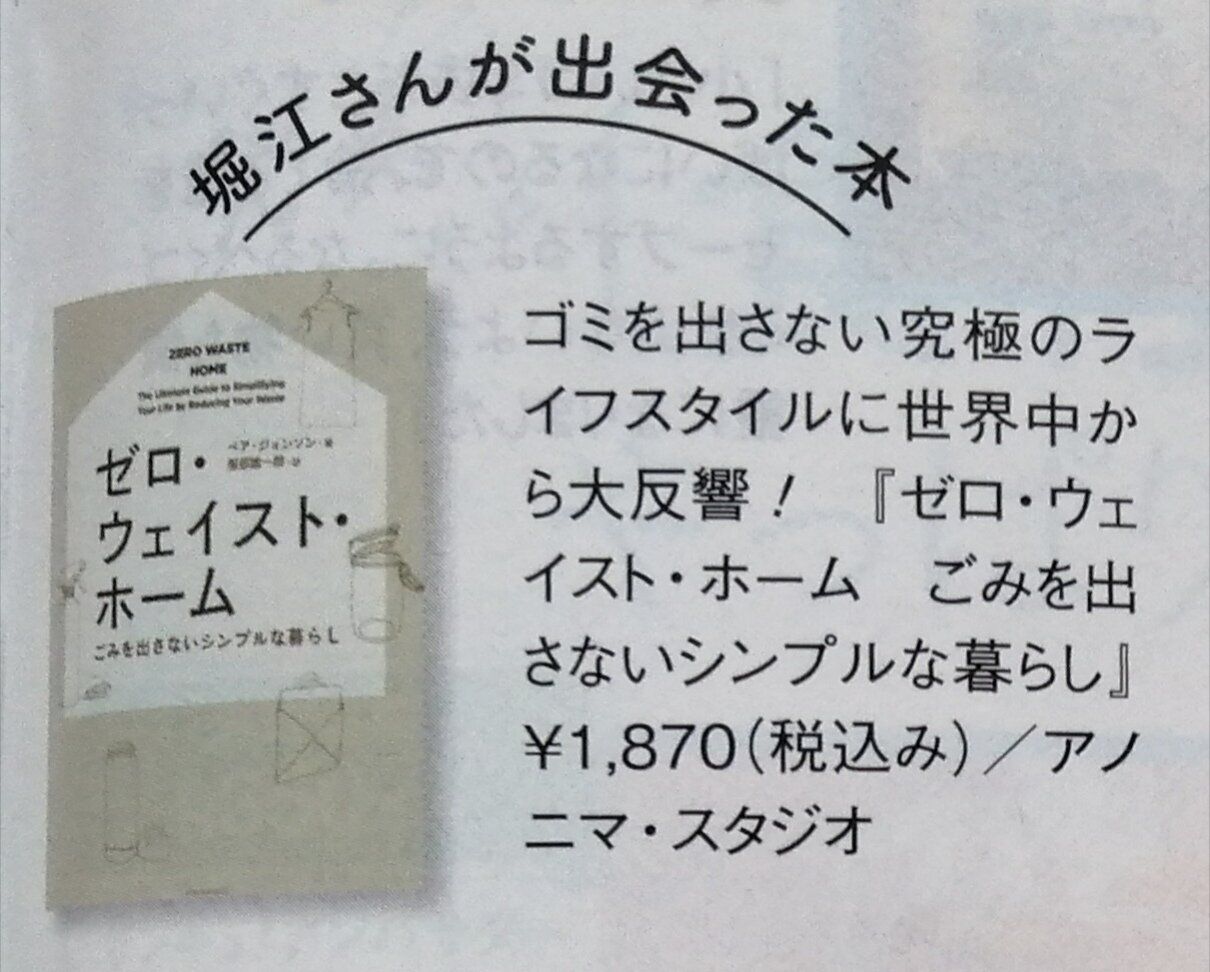 堀江さんが出会った本
ZERO WASTE
HOME
The Ultimate Guide to Simplifying
Your Life by Reducing Your Waste
ゼロ・
ベア・ジョンソン・著
服部雄一郎・訳
ウェイスト・
ホーム
ごみを出さないシンプルな暮らし
ゴミを出さない究極のラ
イフスタイルに世界中か
ら大反響！ 『ゼロ・ウェ
イスト・ホーム ごみを出
さないシンプルな暮らし』
¥1,870（税込み）／アノ
ニマ・スタジオ